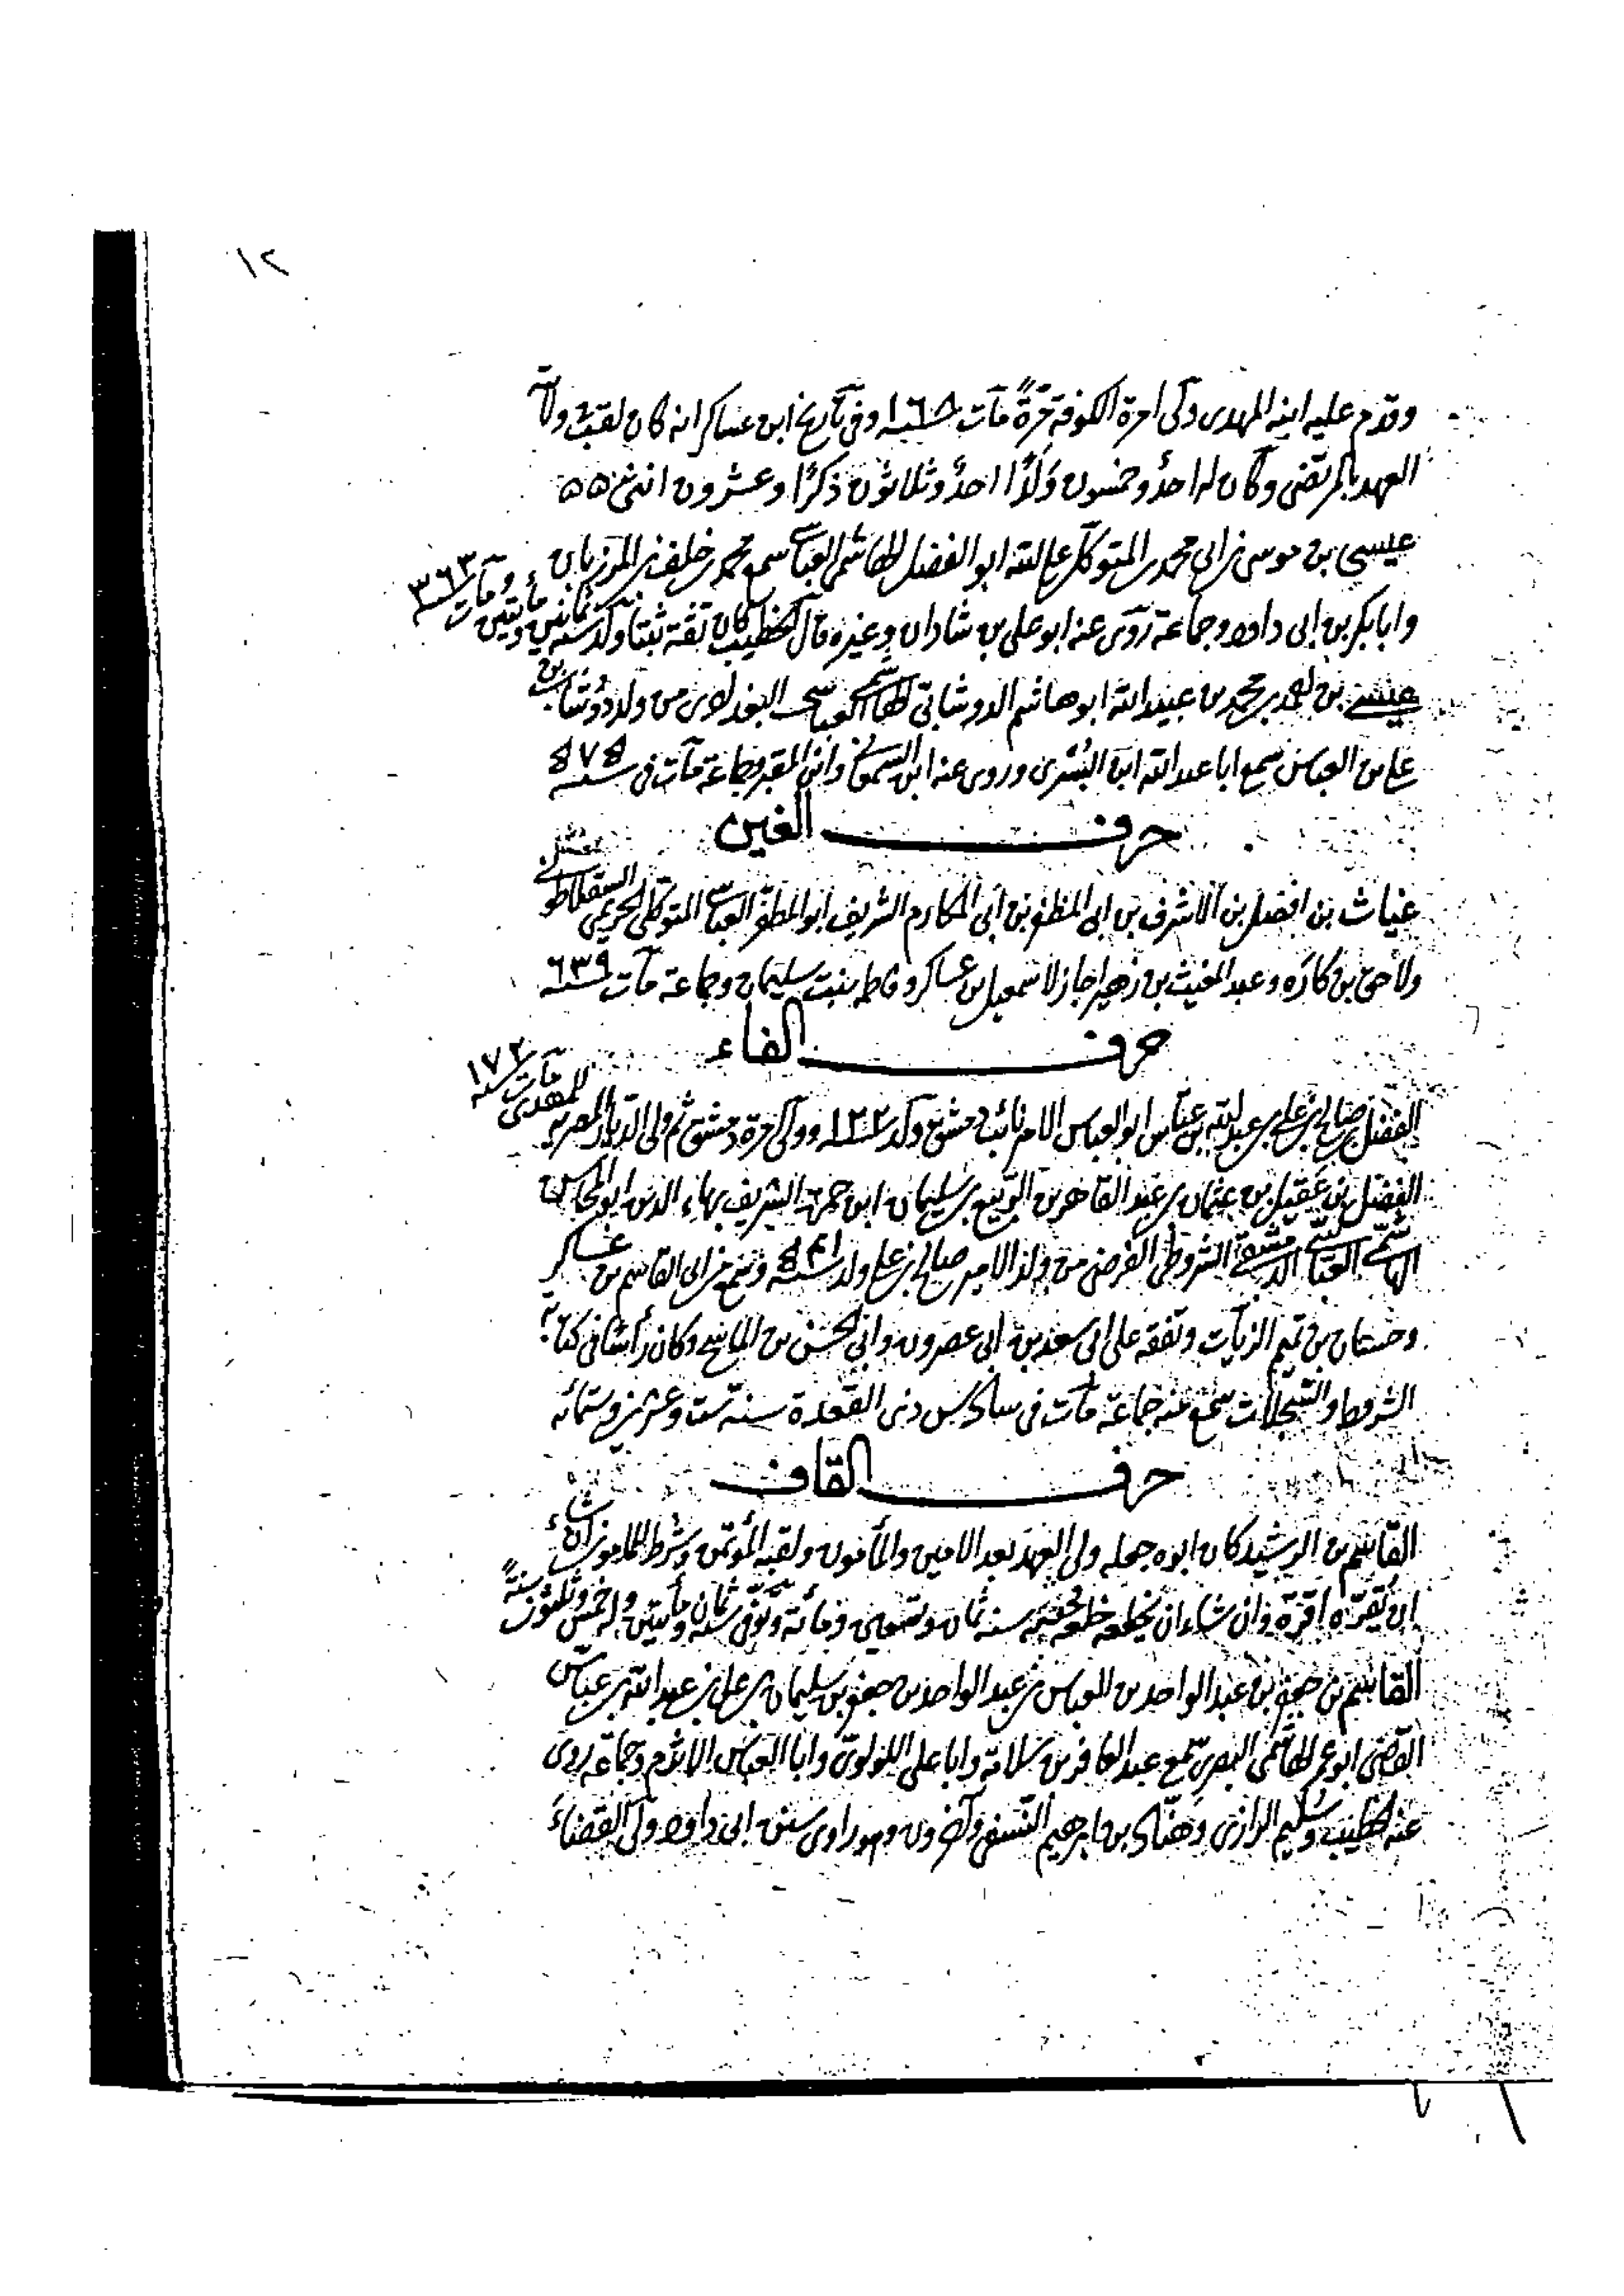 ١٢
وقدم عليه ابنه المهدى ولى امرة الكوفة مرّةً مات سنة ١٦٨ وفى تاريخ ابن عساكر انه كان لقبه ولاّه
العهد بالمرتضى وكان له احدٌ وخمسون ولدًا احدٌ وثلاثون ذكرًا وعشرون انثى
عيسى بن موسى بن ابى محمد بن المتوكل على الله ابو الفضل الهاشمى العباسى سمع محمد بن خلف بن المرزبان
وابا بكر بن ابى داود وجماعة روى عنه ابو على بن شاذان وغيره قال الخطيب كان ثقة ثبتا ولد سنة ثمانين ومأتين ومات سنة ٣٦٣
عيسى بن احمد بن محمد بن عبيد الله ابو هاشم الدوشابى الهاشمى العباسى البغدادى من ولد
على بن العباس سمع ابا عبد الله ابن البسرى وروى عنه ابن السمعانى وجماعة مات فى سنة ٥٧٥
حرف الغين
غياث بن افضل بن الاشرف بن ابى المظفر بن ابى المكارم الشريف ابو المظفر العباسى المتوكلى الحريمى السقلاطونى
ولاحق بن كاره وعبد المغيث بن زهير اجاز لاسمعيل بن عساكر وفاطمه بنت سليمان وجماعة مات سنة ٦٣٩
حرف الفاء
الفضل بن صالح بن على بن عبد الله بن عباس ابو العباس الامير نائب دمشق ولد سنة ١٢٢ وولى امرة دمشق ثم ولى الديار المصريه للمهدى مات سنة ١٧٢
الفضل بن عقيل بن عثمان بن عبد القاهر بن الربيع بن سليمان ابن حمزة الشريف بهاء الدين ابو المحاسن
الهاشمى العباسى الدمشقى الشروطى الفرضى من ولد الامير صالح بن على ولد سنة ٥٤١ وسمع من ابى القاسم بن عساكر
وحسان بن تميم الزيات وتفقه على ابى سعد بن ابى عصرون وابى الحسن بن الماسح وكان رأسا فى كتابة
الشروط والسجلات سمع منه جماعة مات فى سادس ذى القعدة سنة ست وعشرين وستمائه
حرف القاف
القاسم بن الرشيد كان ابوه جعله ولى العهد بعد الامين والمأمون ولقبه المؤتمن وشرط للمأمون ان شاء
ان يقرّه اقرّه وان شاء ان يخلعه خلعه سنة ثمان وتسعين ومائة وتوفى سنة ثمان ومأتين وله خمس وثلثون سنةً
القاسم بن جعفر بن عبد الواحد بن العباس بن عبد الواحد بن جعفر بن سليمان بن على بن عبد الله بن عباس
القاضى ابو عمر الهاشمى البصرى سمع عبد الغافر بن سلامة وابا على اللؤلؤى وابا العباس الاثرم وجماعة روى
عنه الخطيب وسُليم الرازى وهنّاد بن ابرهيم النسفى وآخرون وهو راوى سنن ابى داود ولى القضاء